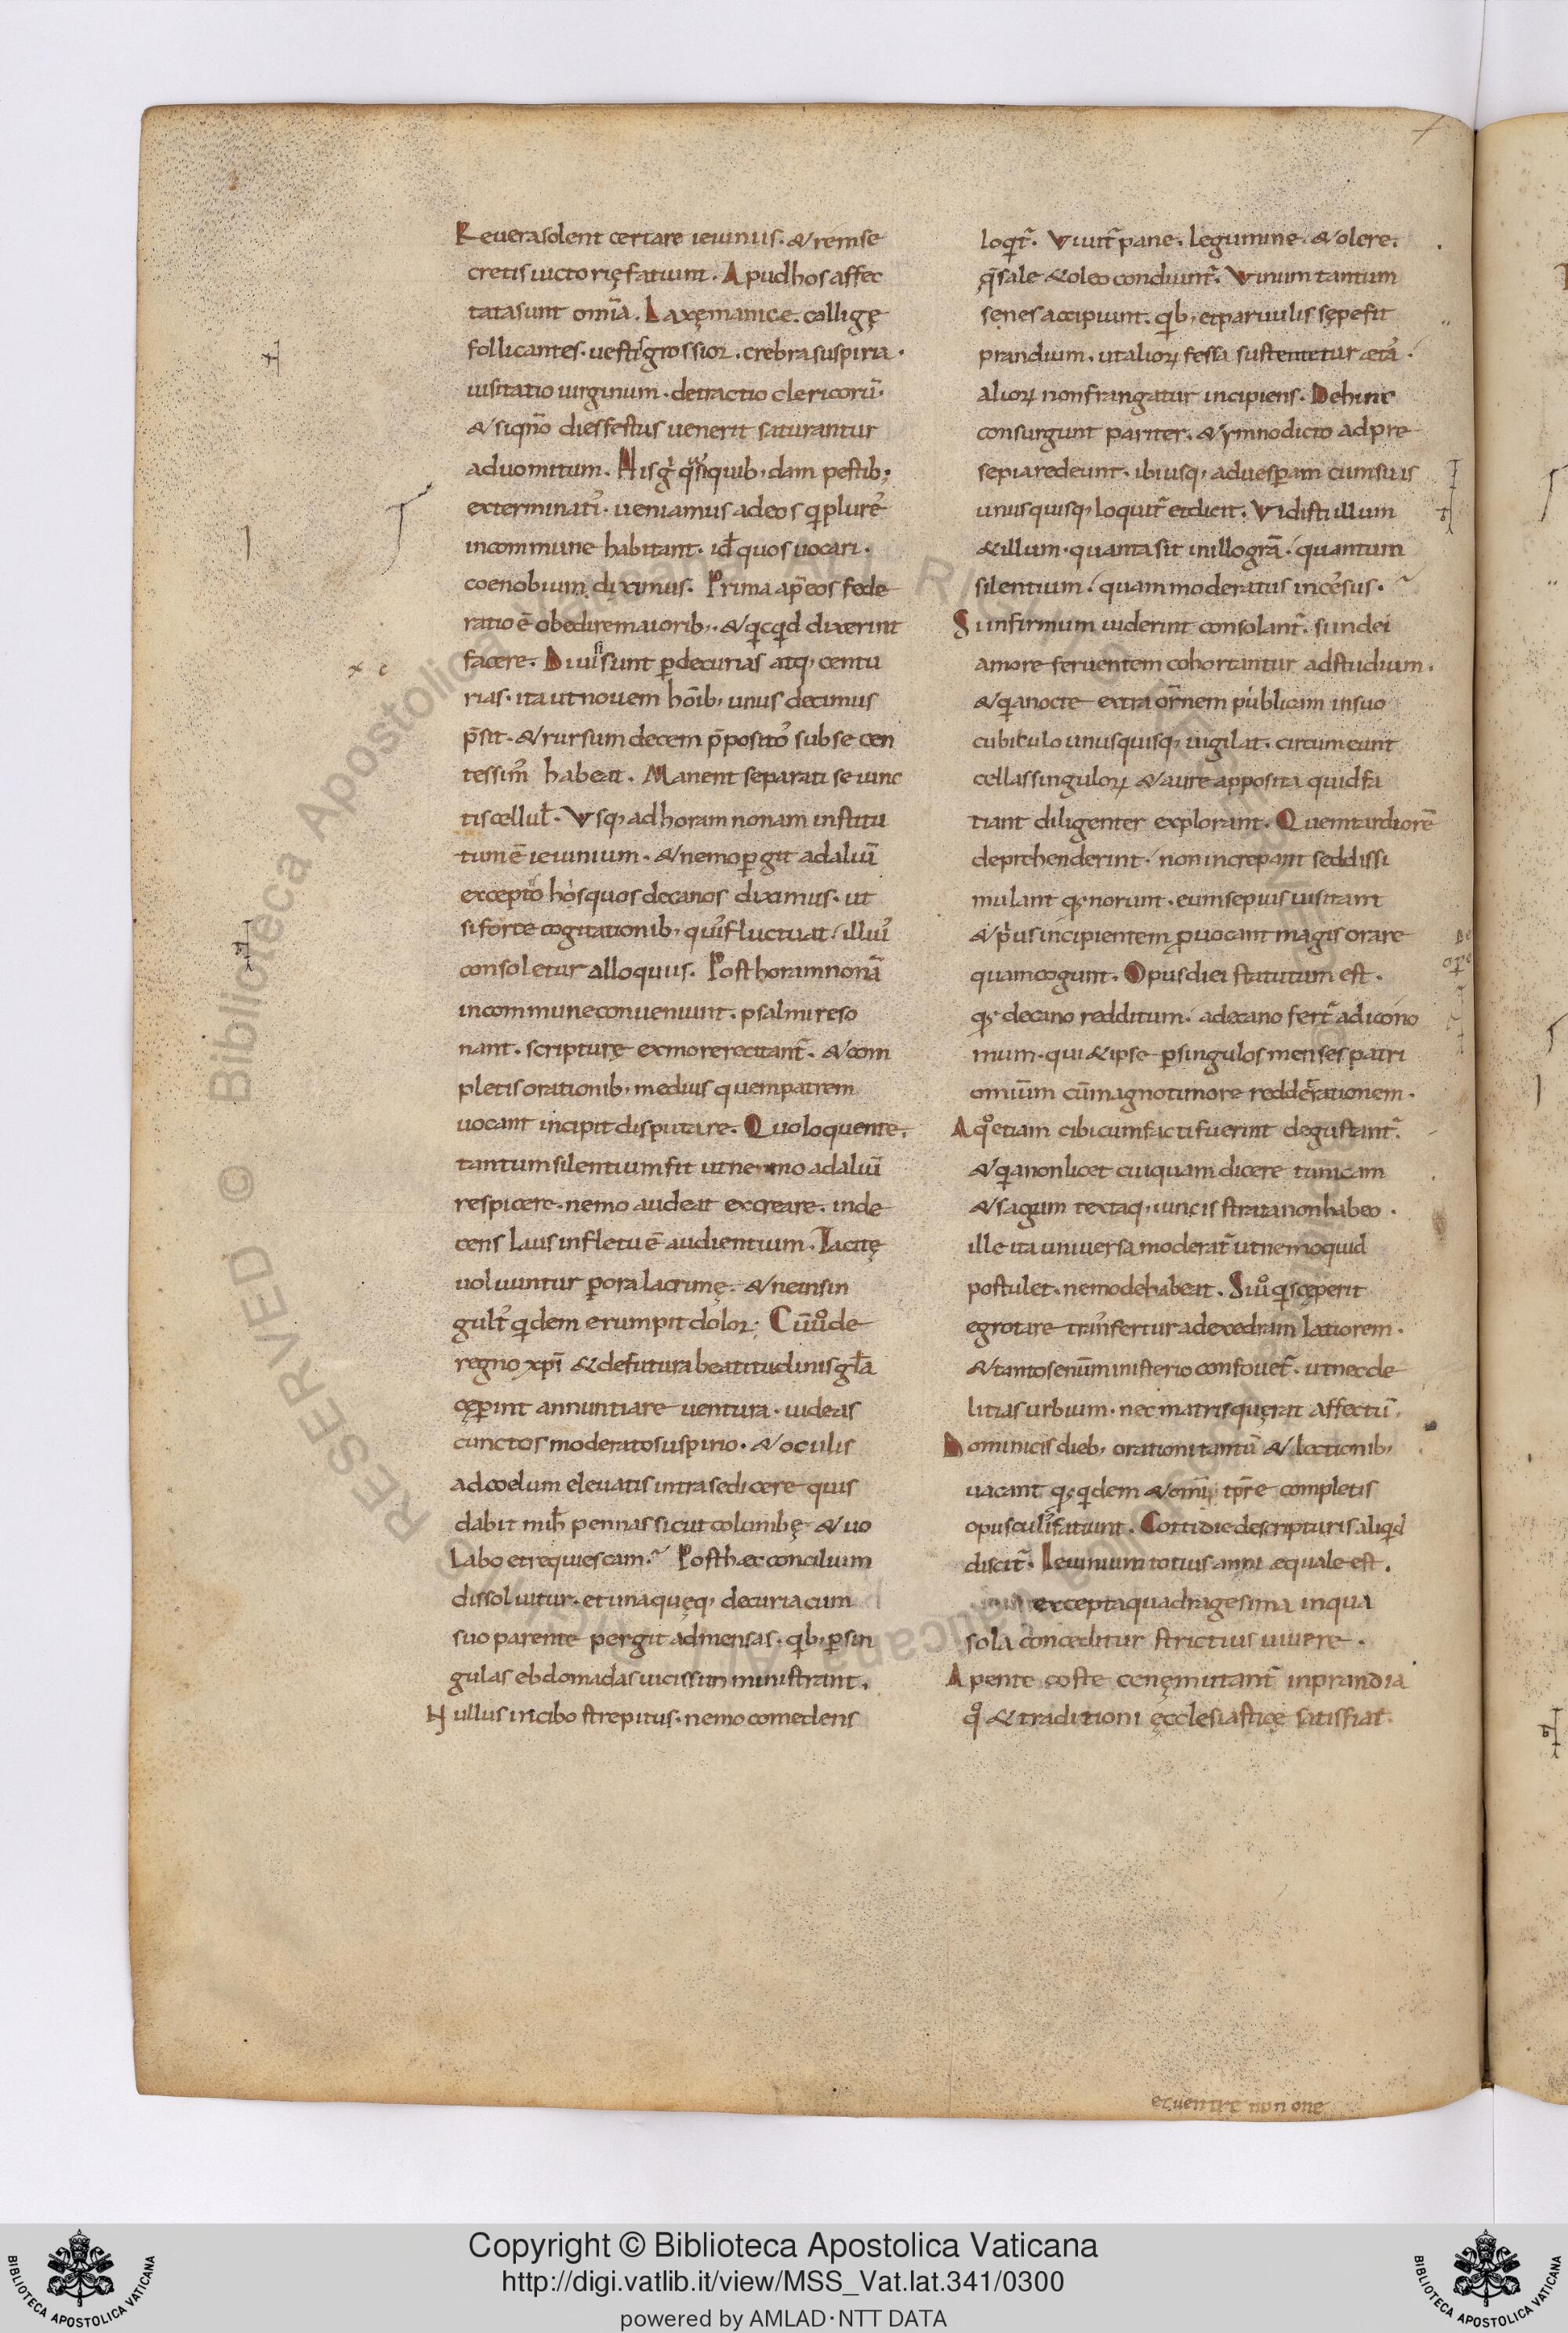 Reuera solent certare ieiuniis. & rem se
cretis uictorię faciunt. Apud hos affec
tata sunt om̄ia. Laxę manicę. calligę
follicantes. uestis grossior. crebra suspiria.
uisitatio uirginum. detractio clericorū.
& siqn̄o dies festus uenerit saturantur
ad uomitum. His quib; dam pestib;
exterminatis. ueniamus ad eos q plures
in commune habitant. id quos uocari.
coenobium diximus. Prima ap̄ eos fede
ratio ē obedire maiorib;. & qicqid dixerint
facere. Diuisi sunt p decurias atq; centu
rias. ita ut nouem hōib; unus decimus
p̄sit. & rursum decem p̄positos sub se cen
tessim habeat. Manent separati seiunc
tis cellul. Usq; ad horam nonam institu
tum ē ieiunium. & nemo pgit ad aliū
excepto hos quos decanos diximus. ut
si forte cogitationib; quis fluctuat. illius
consoletur alloquiis. Post horam nonā
in commune conueniunt. psalmi reso
nant. scripturę ex more recitant. & com
pletis orationib; medius quem patrem
uocant incipit disputare. Quo loquente.
tantum silentium fit ut nemo ad aliū
respicere. nemo audeat excreare. inde
cens laus in fletu ē audientium. Tacitę
uoluuntur p ora lacrimę. & ne in sin
gultus qidem erumpit dolor. Cū uo de
regno xpī & de futura beatitudinis gl̄a
cęperint annuntiare uentura. uideas
cunctos moderato suspirio. & oculis
ad coelum eleuatis intra se dicere quis
dabit mih pennas sicut columbę & uo
labo et requiescam. Post hæc concilium
dissoluitur. et unaquęq; decuria cum
suo parente pergit ad mensas. qib; p sin
gulas ebdomadas uicissim ministrant.
Nullus in cibo strepitus. nemo comedens
loqit. Uiuit pane. legumine. & olere.
q sale & oleo condiunt. Uinum tantum
senes accipiunt. qib; et paruulis sępe fit
prandium. ut alioꝝ fessa sustentetur ætas.
alioꝝ non frangatur incipiens. Dehinc
consurgunt pariter. & ymno dicto ad pre
sepia redeunt. ibi usq; ad uesperam cum suis
unusquisq; loquit et dicit. Uidisti illum
& illum. quanta sit in illo gra. quantum
silentium. quam moderatus incesus.
Si infirmum uiderint consolant. si in dei
amore feruentem cohortantur ad studium.
& qia nocte extra orōnem publicam in suo
cubiculo unusquisq; uigilat. circumeunt
cellas singuloꝝ & aure apposita quid fa
tiant diligenter explorant. Quem tardiorē
deprehenderint. non increpant sed dissi
mulant q norunt. eum sepius uisitant
& prius incipientem puocant magis orare
quam cogunt. Opus diei statutum est.
q decano redditum. a decano fert ad icono
mum. qui & ipse p singulos menses patri
omium cū magno timore reddet rationem.
A quo etiam cibi cum facti fuerint degustant.
& qia non licet cuiquam dicere tunicam
& sagum textaq; iuncis strata non habeo.
ille ita uniuersa moderat ut nemo quid
postulet. nemo dehabeat. Si uo qis cęperit
egrotare transfertur ad exedram latiorem.
& tanto senum ministerio confouet. ut nec de
litias urbium. nec matris quęrat affectū.
Dominicis dieb; orationi tantū & lectionib;
uacant q qidem & omi tpre completis
opusculis fatiunt. Cottidie de scripturis aliqid
discit. Ieiunium totius anni æquale est.
excepta quadragesima in qua
sola conceditur strictius uiuere.
A pentecoste cenę mittant in prandia
quo & traditioni ęcclesiasticę satisfiat.
et uentre non one
Copyright © Biblioteca Apostolica Vaticana
http://digi.vatlib.it/view/MSS_Vat.lat.341/0300
powered by AMLAD·NTT DATA